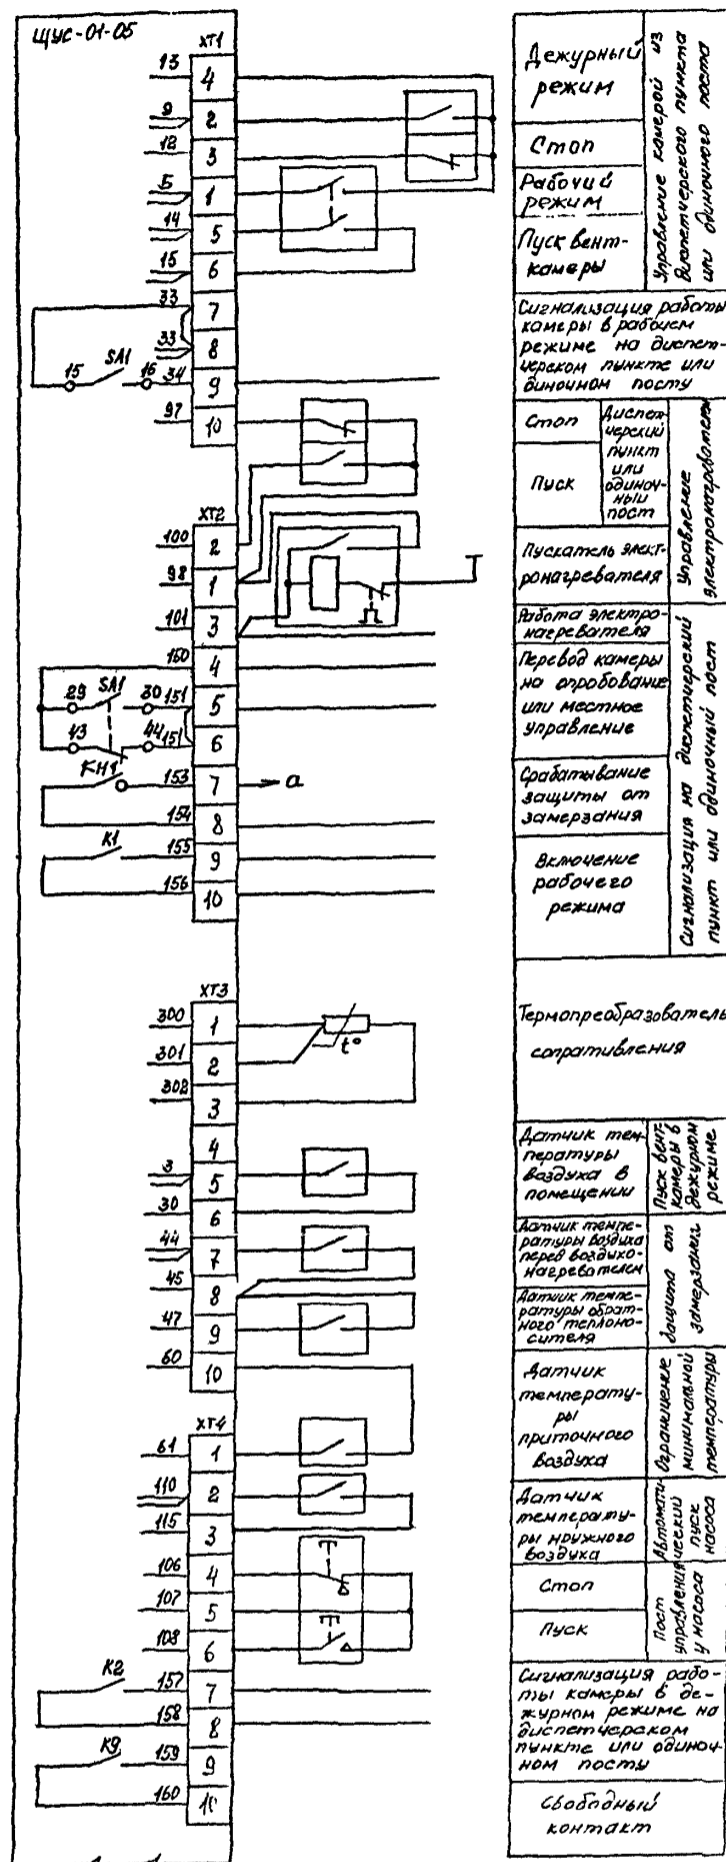 ЩУС-01-05
ХТ1
13
4
9
2
12
3
5
1
14
5
15
6
33
7
33
8
15 SA1 16 34
9
97
10
ХТ2
100
2
98
1
101
3
150
4
29 SA1 30 151
5
43 44 151
6
КН1 153
7
а
154
8
К1 155
9
156
10
ХТ3
300
1
301
2
t°
302
3
4
3
5
30
6
44
7
45
8
47
9
60
10
ХТ4
61
1
110
2
115
3
106
4
107
5
108
6
К2 157
7
158
8
К9 159
9
160
10
Дежурный
режим
Стоп
Рабочий
режим
Пуск вент-
камеры
Управление камерой из
диспетчерского пункта
или одиночного поста
Сигнализация работы
камеры в рабочем
режиме на диспет-
черском пункте или
диночном посту
Стоп
Пуск
Диспет-
черский
пункт
или
одиноч-
ный
пост
Пускатель элект-
ронагревателя
Управление
электронагревателем
Работа электро-
нагревателя
Перевод камеры
на опробование
или местное
управление
Срабатывание
защиты от
замерзания
Включение
рабочего
режима
Сигнализация на диспетчерский
пункт или одиночный пост
Термопреобразователь
сопративления
Датчик тем-
пературы
воздуха в
помещении
Пуск вент-
камеры в
дежурном
режиме
Датчик темпе-
ратуры воздуха
перед воздухо-
нагревателем
Датчик темпе-
ратуры обрат-
ного теплоно-
сителя
Защита от
замерзания
Датчик
температу-
ры
приточного
воздуха
Ограничение
минимальной
температуры
Датчик
температу-
ры нружного
воздуха
Автомати-
ческий
пуск
насоса
Стоп
Пуск
Пост
управления
у насоса
Сигнализация рабо-
ты камеры в де-
журном режиме на
диспетчерском
пункте или одиноч-
ном посту
Свободный
контакт